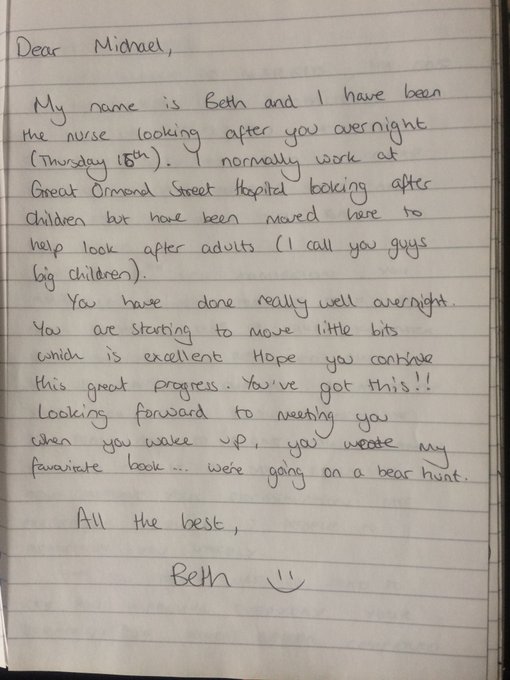 Dear Michael,
My name is Beth and I have been
the nurse looking after you overnight
(Thursday 16th). I normally work at
Great Ormond Street Hospital looking after
children but have been moved here to
help look after adults (I call you guys
big children).
You have done really well overnight.
You are starting to move little bits
which is excellent Hope you continue
this great progress. You've got this!!
Looking forward to meeting you
when you wake up, you wrote my
favourite book... we're going on a bear hunt.
All the best,
Beth